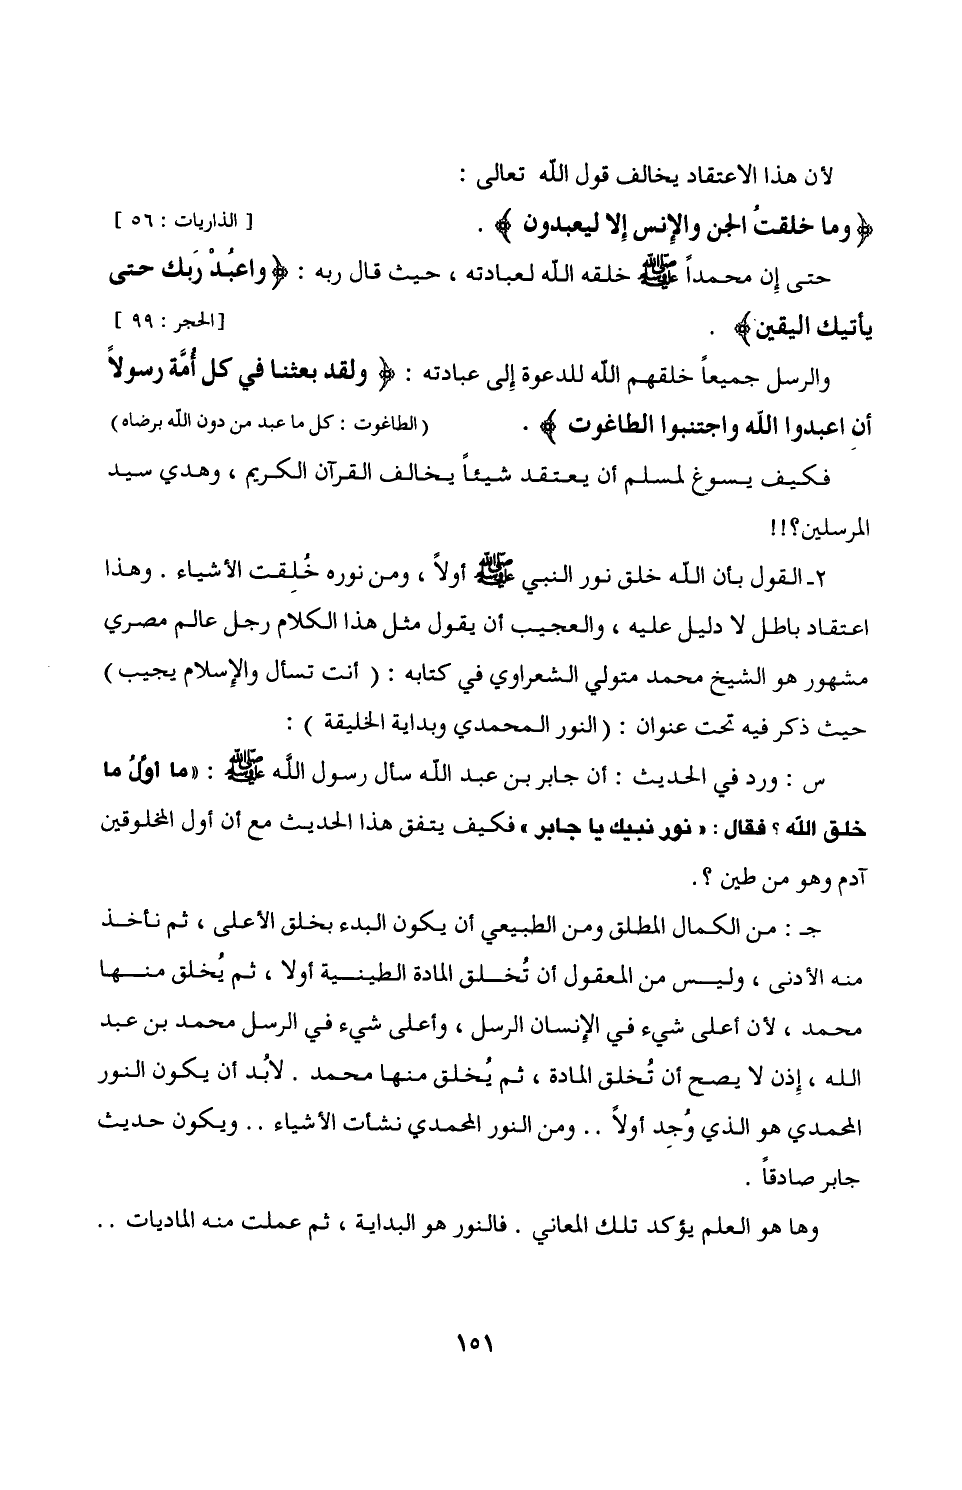 لأن هذا الاعتقاد يخالف قول الله تعالى :
﴿ وما خلقتُ الجن والإنس إلا ليعبدون ﴾ . [ الذاريات : ٥٦ ]
حتى إن محمداً ﷺ خلقه الله لعبادته ، حيث قال ربه : ﴿ واعبُدْ رَبك حتى
يأتيك اليقين﴾ . [الحجر : ٩٩ ]
والرسل جميعاً خلقهم الله للدعوة إلى عبادته : ﴿ ولقد بعثنا في كل أُمَّة رسولاً
أن اعبدوا الله واجتنبوا الطاغوت ﴾ . (الطاغوت : كل ما عبد من دون الله برضاه)
فكيف يسوغ لمسلم أن يعتقد شيئاً يخالف القرآن الكريم ، وهدي سيد
المرسلين؟!!!
٢ـ القول بأن الله خلق نور النبي ﷺ أولاً ، ومن نوره خُلِقت الأشياء . وهذا
اعتقاد باطل لا دليل عليه ، والعجيب أن يقول مثل هذا الكلام رجل عالم مصري
مشهور هو الشيخ محمد متولي الشعراوي في كتابه : ( أنت تسأل والإسلام يجيب )
حيث ذكر فيه تحت عنوان : (النور المحمدي وبداية الخليقة ) :
س : ورد في الحديث : أن جابر بن عبد الله سأل رسول اللَّه ﷺ : «ما أوَّلُ ما
خلق الله ؟ فقال : « نور نبيك يا جابر » فكيف يتفق هذا الحديث مع أن أول المخلوقين
آدم وهو من طين ؟.
جـ : من الكمال المطلق ومن الطبيعي أن يكون البدء بخلق الأعلى ، ثم نأخذ
منه الأدنى ، وليس من المعقول أن تُخلق المادة الطينية أولا ، ثم يُخلق منها
محمد ، لأن أعلى شيء في الإنسان الرسل ، وأعلى شيء في الرسل محمد بن عبد
الله ، إذن لا يصح أن تُخلق المادة ، ثم يُخلق منها محمد . لابُد أن يكون النور
المحمدي هو الذي وُجِد أولاً .. ومن النور المحمدي نشأت الأشياء .. ويكون حديث
جابر صادقاً .
وها هو العلم يؤكد تلك المعاني . فالنور هو البداية ، ثم عملت منه الماديات ..
١٥١